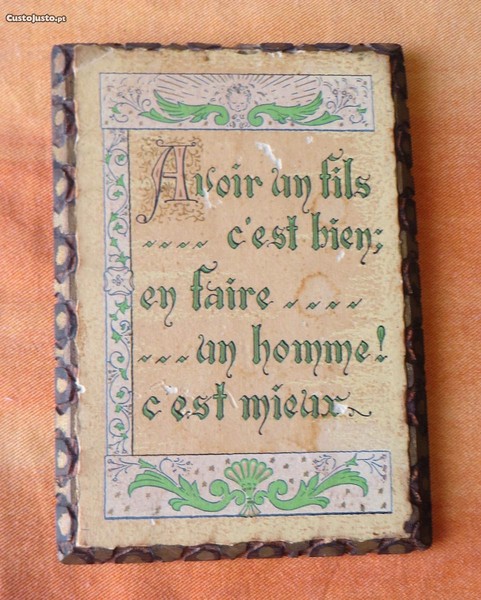 CustoJusto.pt
Avoir un fils
.... c'est bien;
en faire ....
... un homme!
c'est mieux